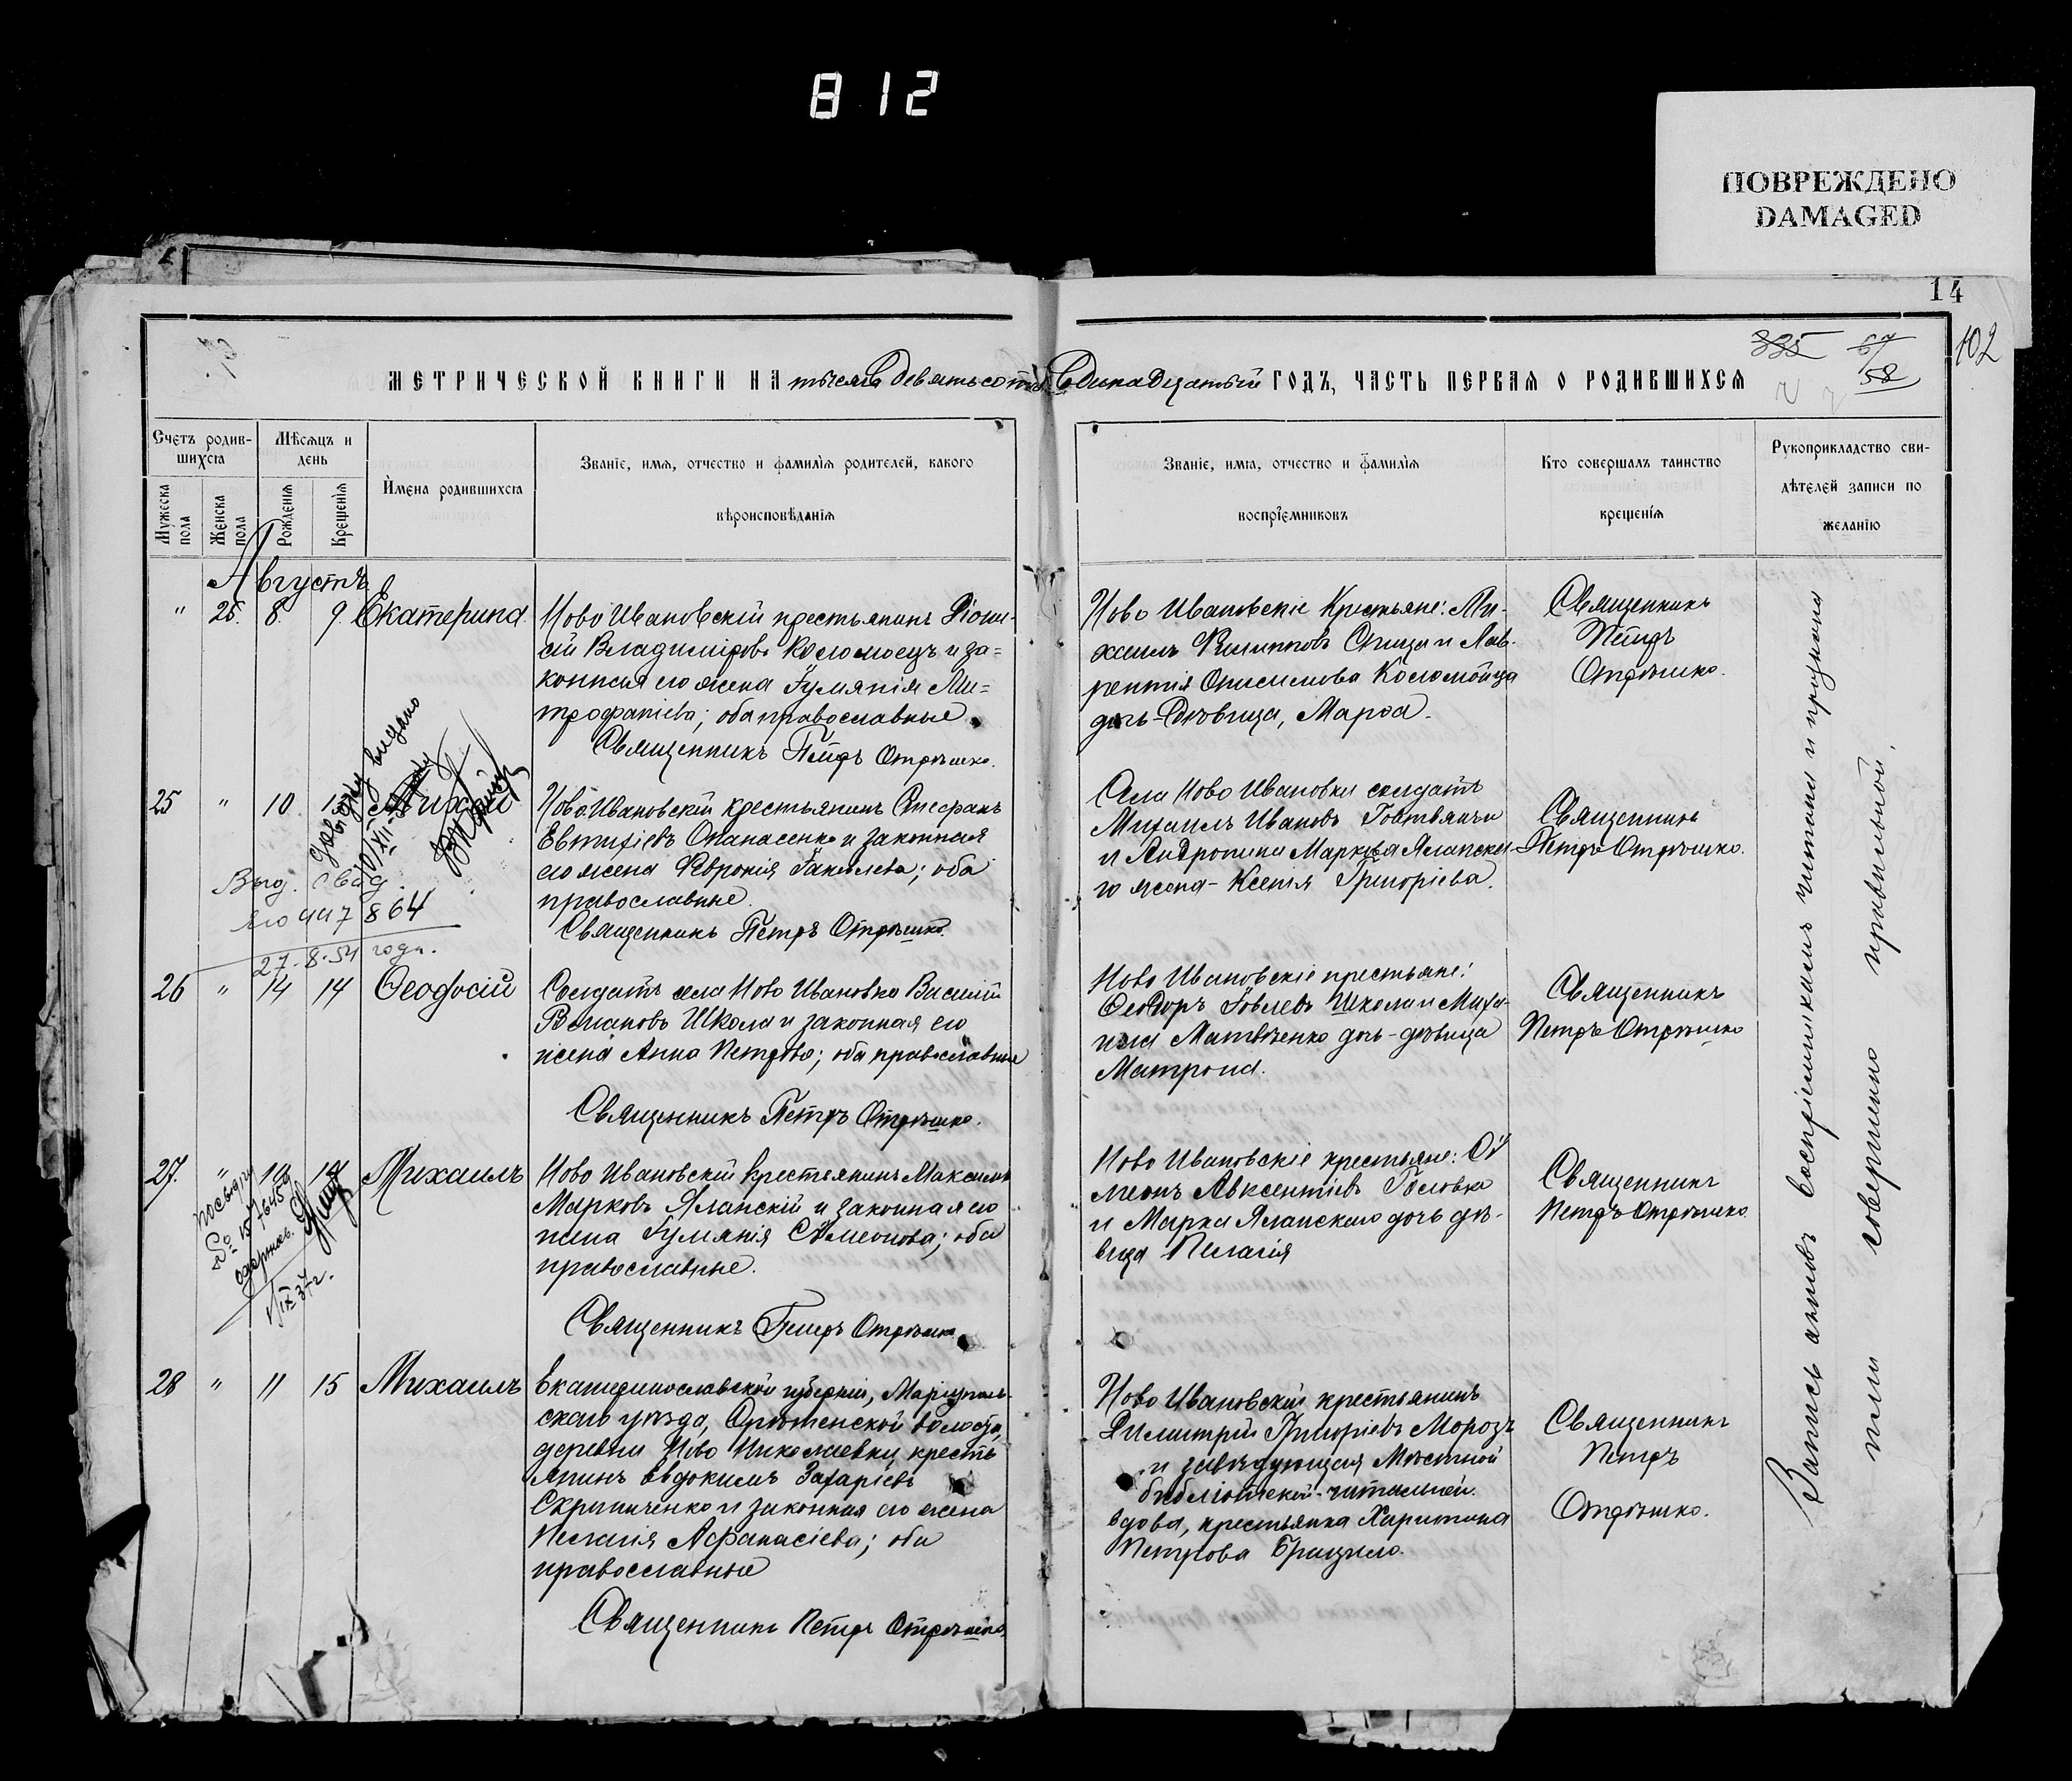 812
ПОВРЕЖДЕНО
DAMAGED
14
102
335
67
58
МЕТРИЧЕСКОЙ КНИГИ НА тысяча девятьсотъ Одинадцатый ГОДЪ, ЧАСТЬ ПЕРВАЯ О РОДИВШИХСЯ
Счетъ родив-
шихся
Мужеска пола
Женска пола
Мѣсяцъ и
день
Рожденія
Крещенія
Имена родившихся
Званіе, имя, отчество и фамилія родителей, какого
вѣроисповѣданія
Званіе, имя, отчество и фамилія
воспріемниковъ
Кто совершалъ таинство
крещенія
Рукоприкладство сви-
дѣтелей записи по
желанію
Августъ
" 25. 8. 9. Екатерина.
Ново Ивановскій крестьянинъ Діони-
сій Владиміровъ Коломоецъ и за=
конная его жена Іуліанія Ми=
трофаніева; оба православные.
Священникъ Петръ Отрѣшко.
Ново Ивановскіе Крестьяне: Ми-
хаилъ Филипповъ Спица и Лав-
рентія Онисимова Коломойца
дочь-дѣвица, Марѳа.
Священникъ
Петръ
Отрѣшко.
25 " 10.
Ново-Ивановскій крестьянинъ Стефанъ
Евтихіевъ Опанасенко и законная
его жена Февронія Іаковлева; оба
православные.
Священникъ Петръ Отрѣшко.
Села Ново Ивановки солдатъ
Михаилъ Ивановъ
и Андроника Маркова Яланска-
го жена - Ксенія Григоріева.
Священникъ
Петръ Отрѣшко.
видано
Выд. свид.
447864
27.8.54 года.
26 " 14 14 Ѳеодосій
Солдатъ села Ново Ивановка Василій
Школа и законная его
жена Анна Петрова; оба православные
Священникъ Петръ Отрѣшко.
Ново Ивановскіе крестьяне:
Ѳеодоръ Іовлевъ Школа и Миха-
ила Матвѣенко дочь-дѣвица
Матрона.
Священникъ
Петръ Отрѣшко
27. " 14 Михаилъ
Ново Ивановскій крестьянинъ Максимъ
Марковъ Яланскій и законная его
жена Іуліанія Сѵмеонова; оба
православные.
Священникъ Петръ Отрѣшко
Ново Ивановскіе крестьяне: Сѵ
меонъ Авксентіевъ Головко
и Марка Яланскаго дочь дѣ-
вица Пелагія
Священникъ
Петръ Отрѣшко.
IX 37 г.
28 " 11 15 Михаилъ
Екатеринославской губерніи, Маріуполь-
скаго уѣзда, волости,
деревни Ново Николаевки, кресть
янинъ Евдокимъ Захаріевъ
Скрипниченко и законная его жена
Пелагія Аѳанасіева; оба
православные
Священникъ Петръ Отрѣшко.
Ново Ивановскій крестьянинъ
Димитрій Григоріевъ Морозъ
и завѣдующая Мѣстной
библіотекой-читальней
вдова, крестьянка Харитина
Петрова
Священникъ
Петръ
Отрѣшко.
Запись актовъ воспріемникамъ читана и признана
ими совершенно правильной.